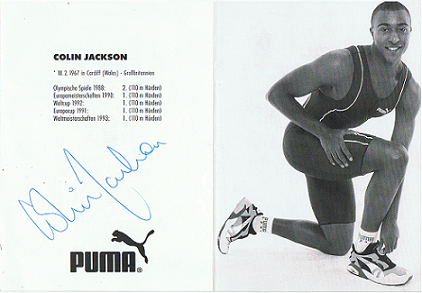 COLIN JACKSON
* 18. 2. 1967 in Cardiff (Wales) - Großbritannien
Olympische Spiele 1988: 2. (110 m Hürden)
Europameisterschaften 1990: 1. (110 m Hürden)
Weltcup 1992: 1. (110 m Hürden)
Europacup 1991: 1. (110 m Hürden)
Weltmeisterschaften 1993: 1. (110 m Hürden)
Colin Jackson
PUMA®